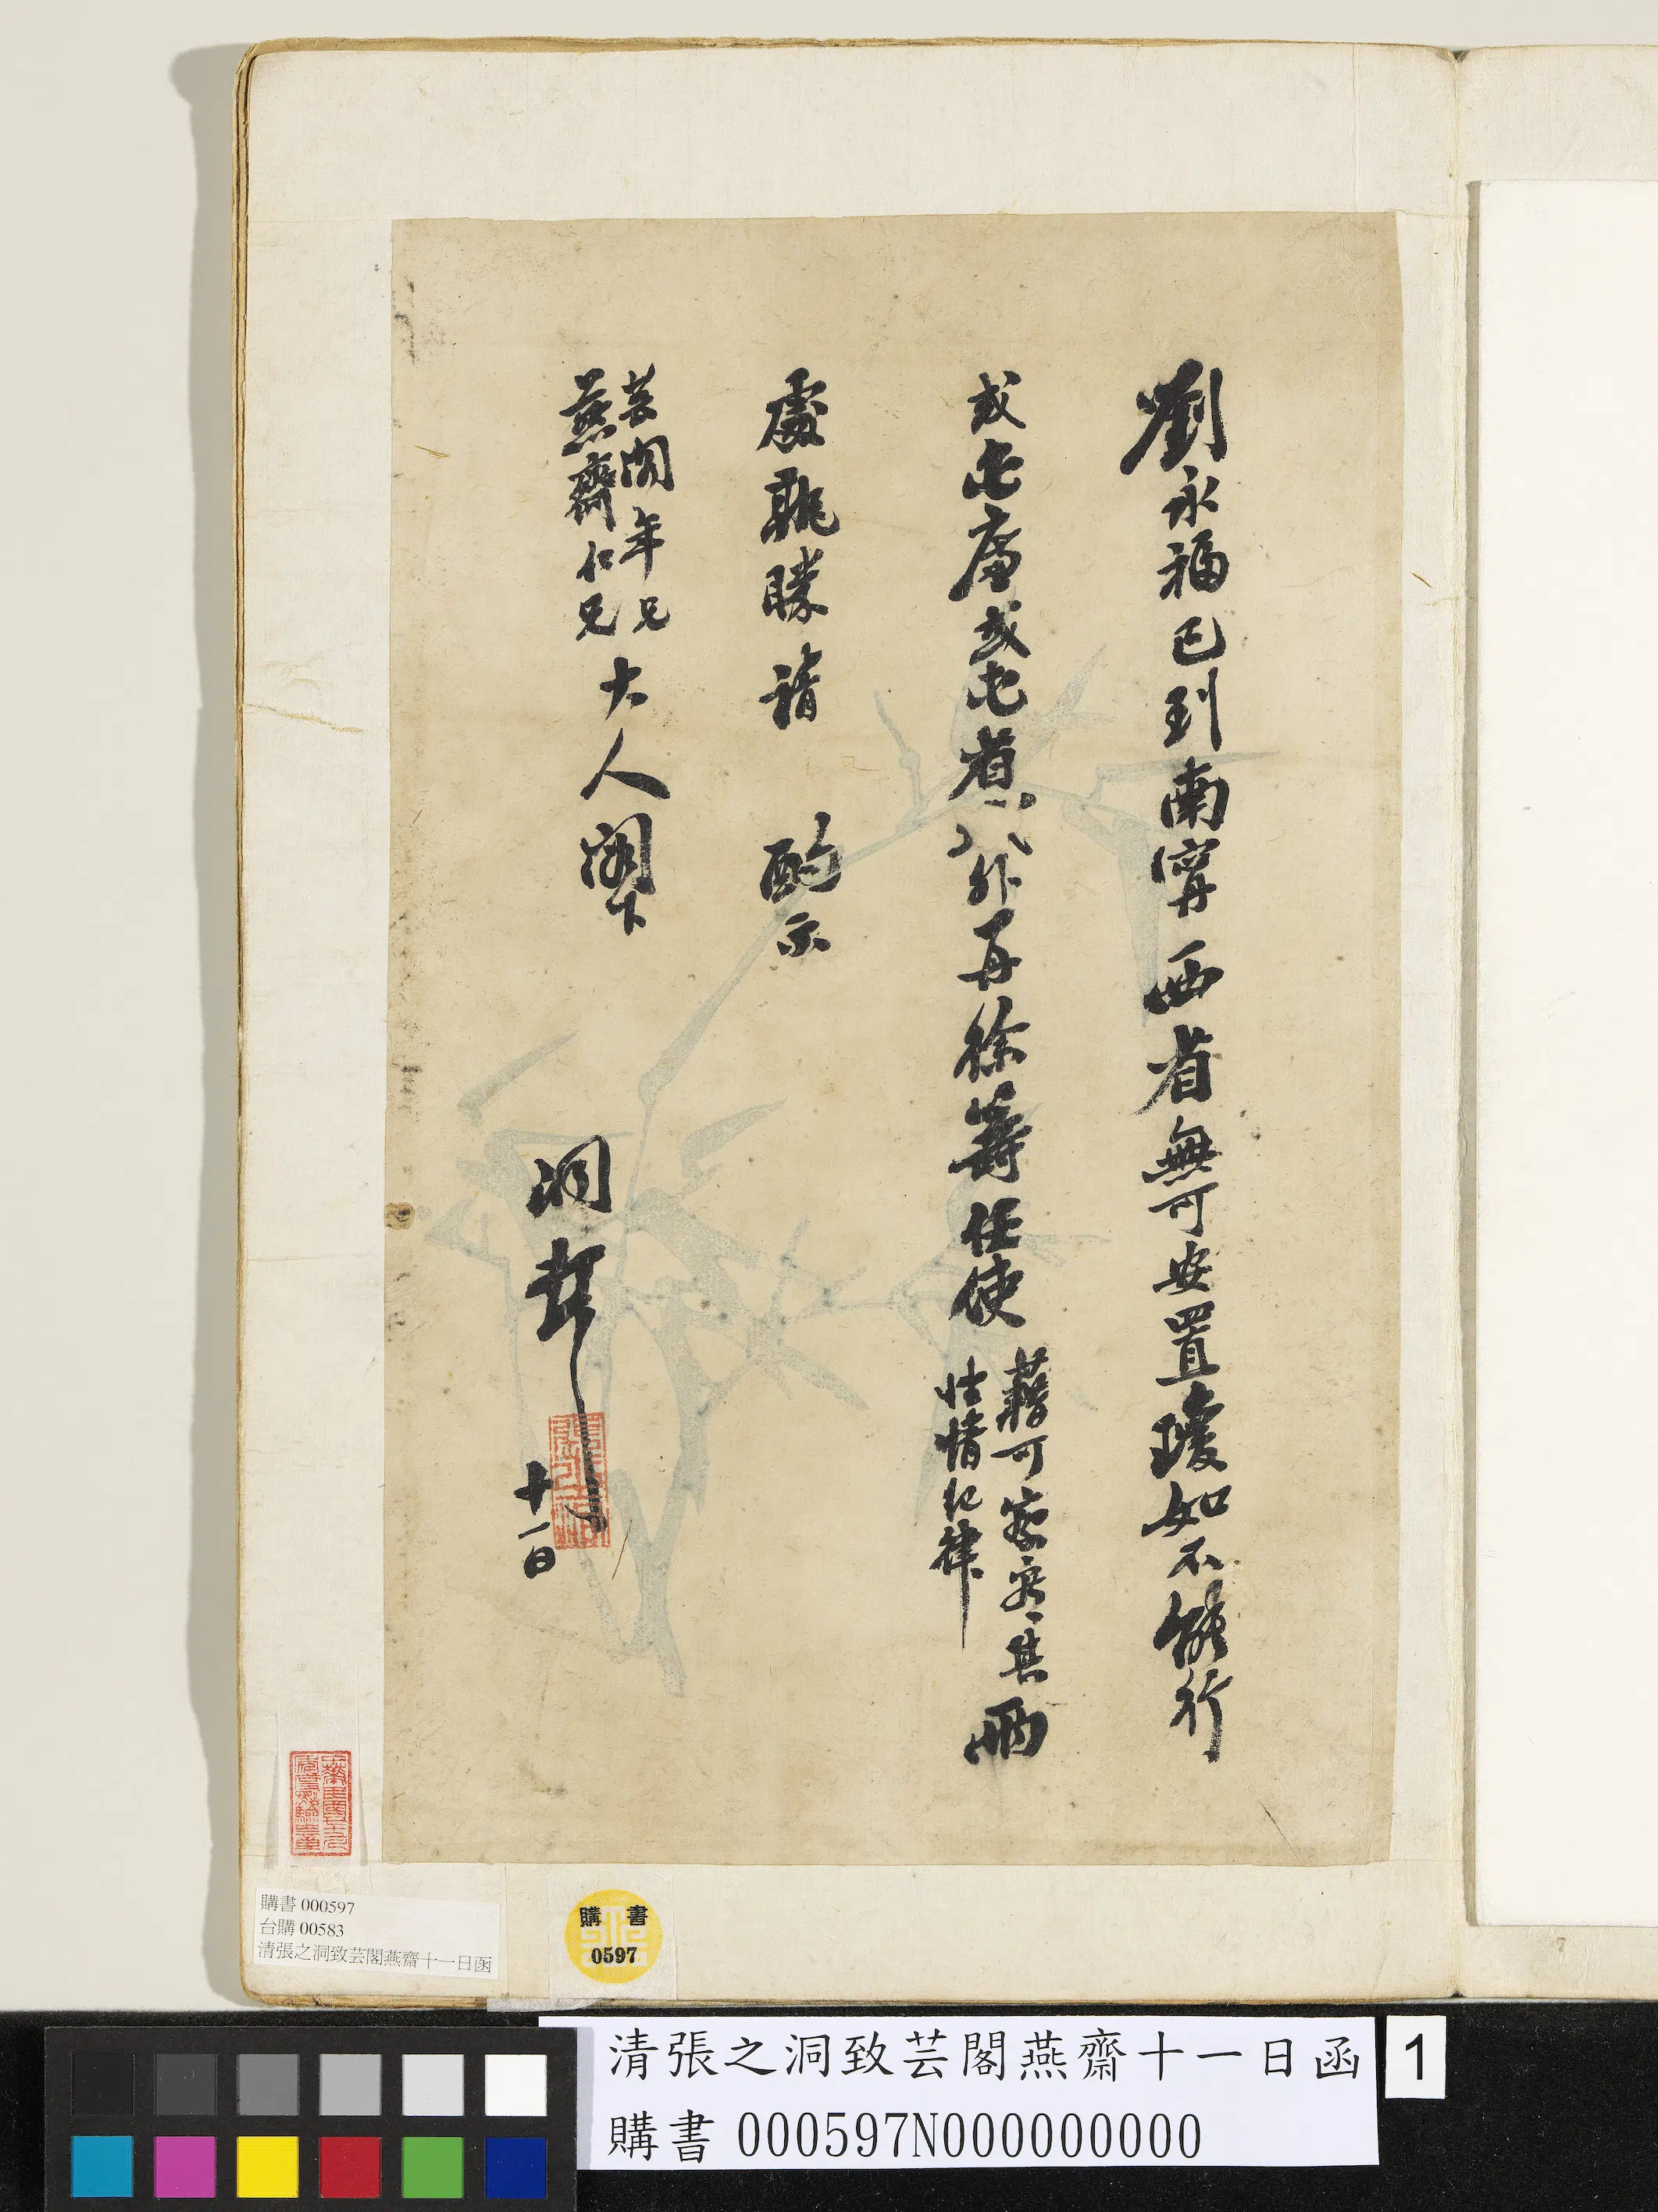 劉永福已到南甯西省無可安置瓊如不能行
或屯廉或屯省〻外再徐籌任使
藉可察其
性情紀律
兩
處孰勝請 酌示
芸閣年兄
燕齋仁兄
大人閣下
洞頓
十一日
購書 000597
台購 00583
清張之洞致芸閣燕齋十一日函
購書
0597
清張之洞致芸閣燕齋十一日函
1
購書 000597N000000000